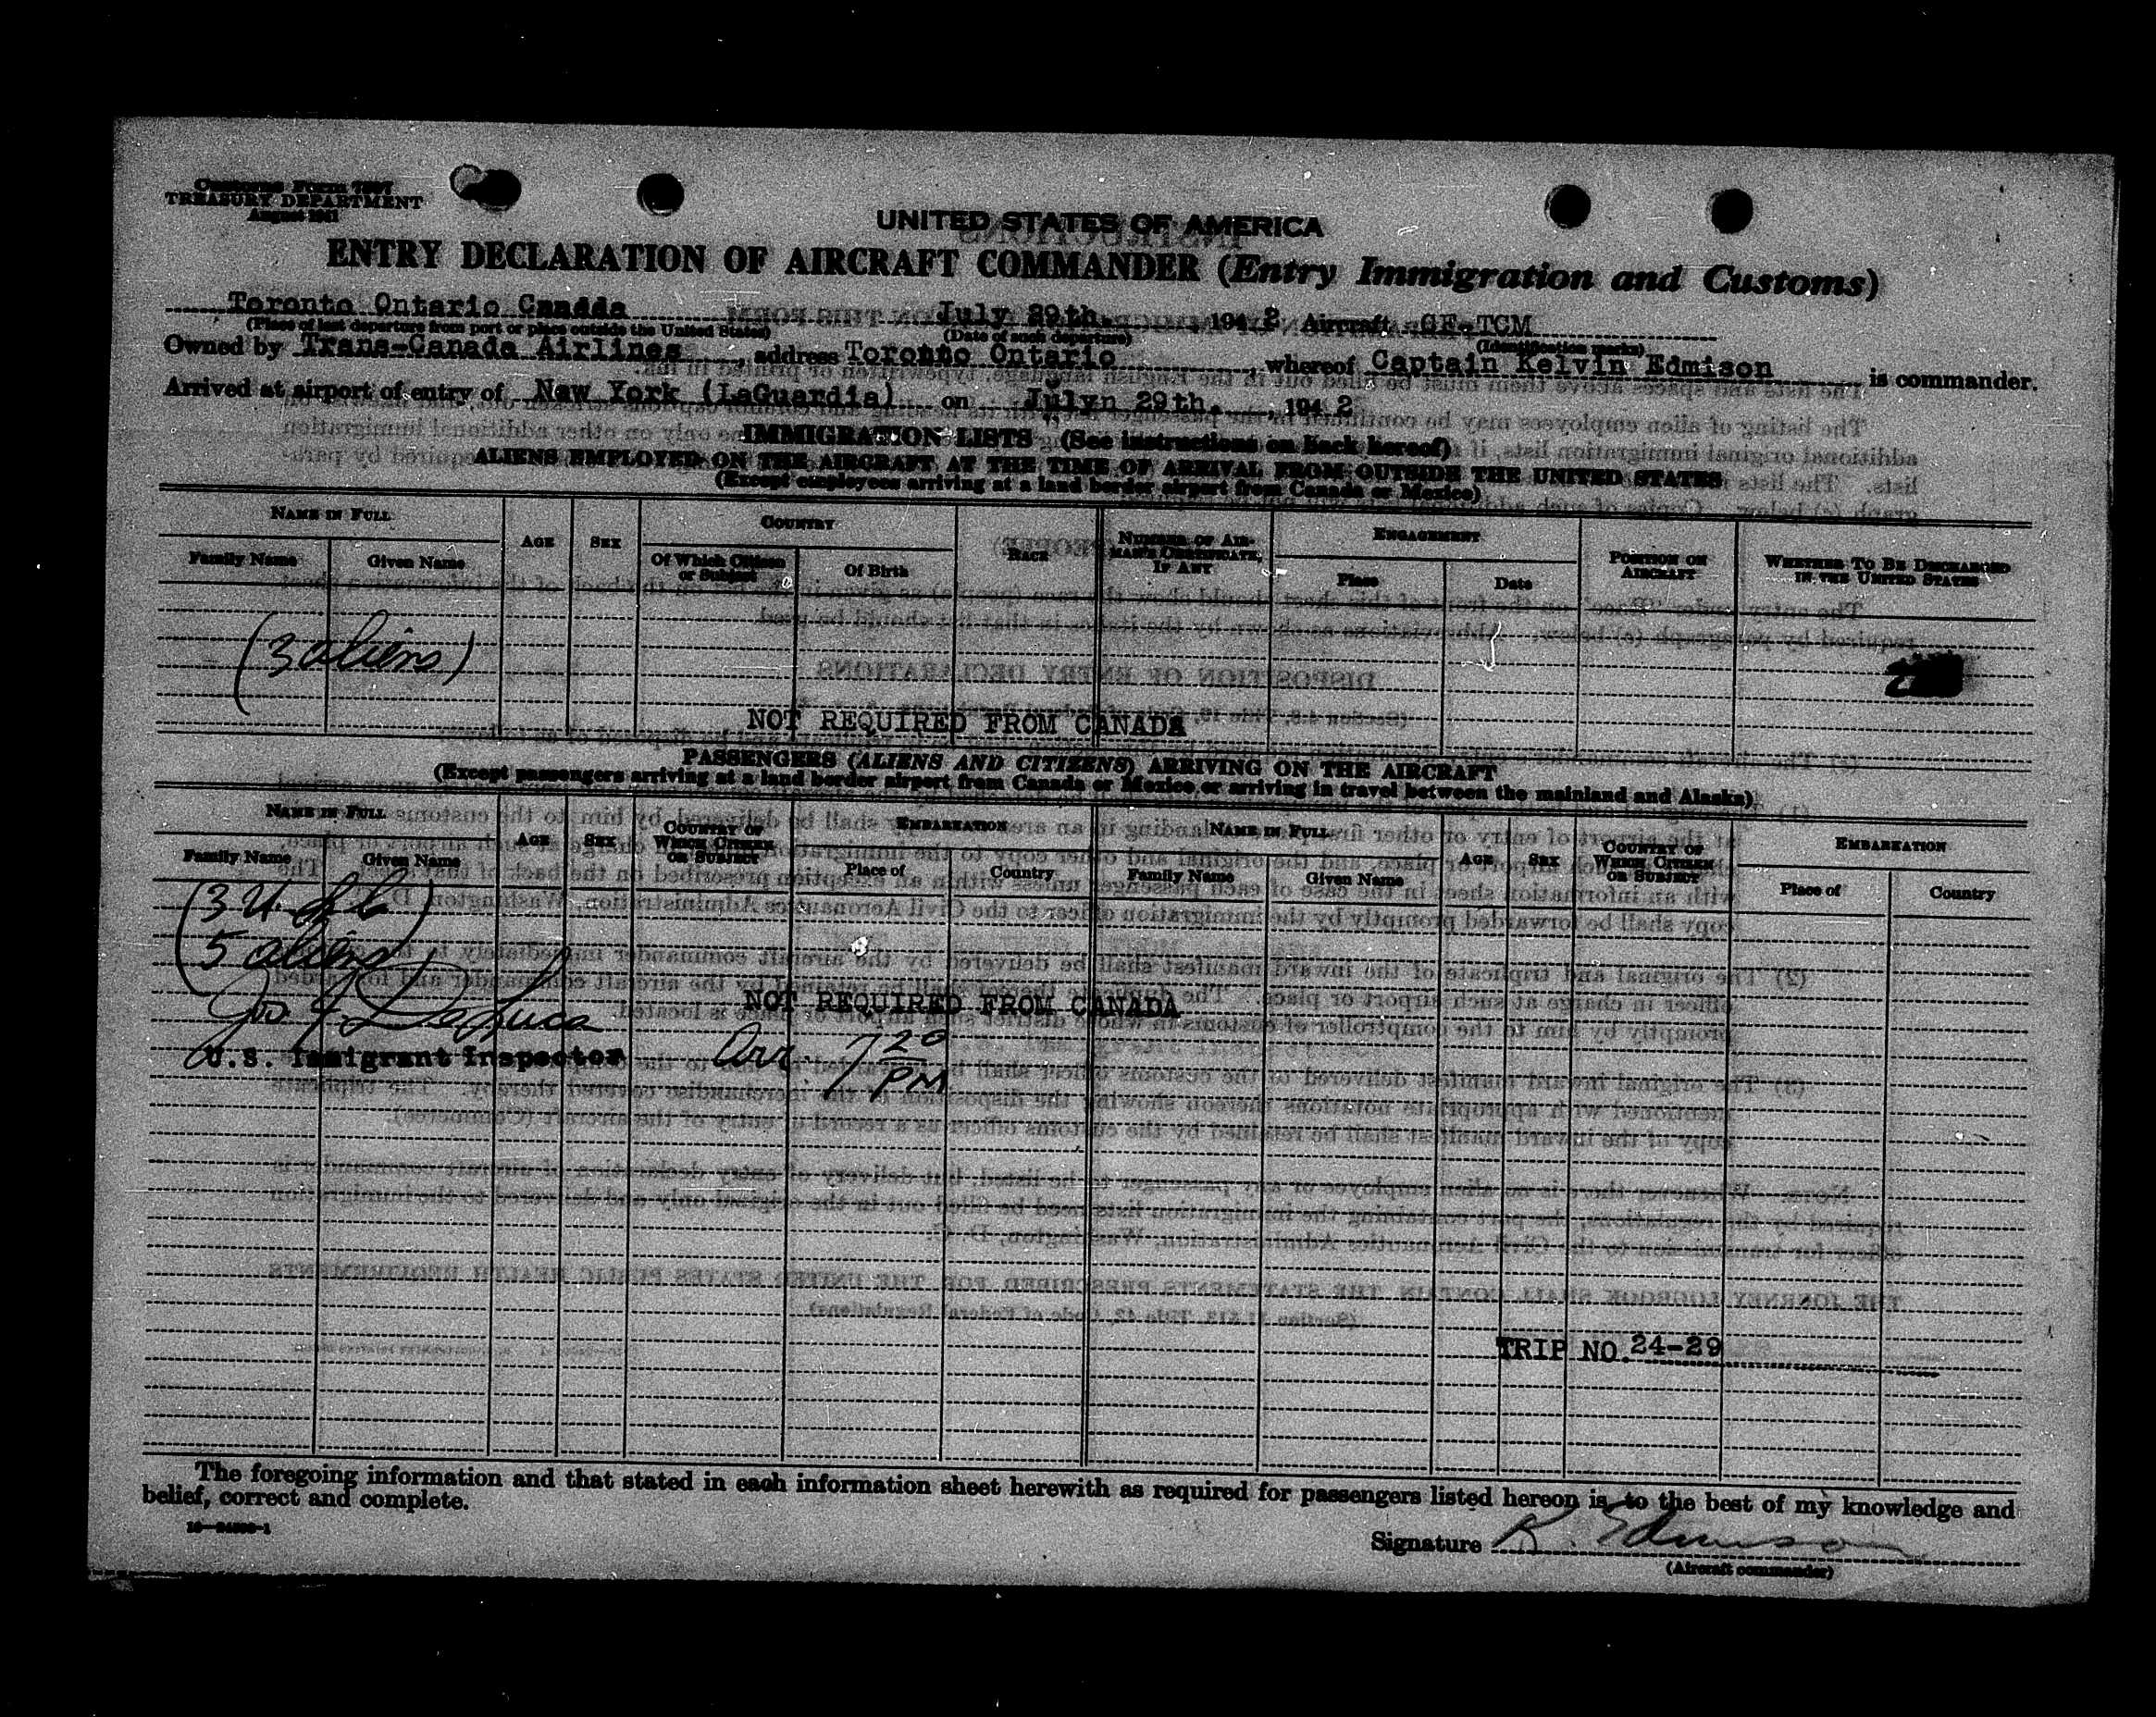 Customs Form 7507
TREASURY DEPARTMENT
August 1941
UNITED STATES OF AMERICA
ENTRY DECLARATION OF AIRCRAFT COMMANDER (Entry Immigration and Customs)
Toronto Ontario Canada July 29th, 1942 Aircraft CF-TCM
(Place of last departure from port or place outside the United States) (Date of such departure) (Identification marks)
Owned by Trans-Canada Airlines, address Toronto Ontario, whereof Captain Kelvin Edmison is commander.
Arrived at airport of entry of New York (LaGuardia) on July 29th, 1942
IMMIGRATION LISTS (See instructions on back hereof)
ALIENS EMPLOYED ON THE AIRCRAFT AT THE TIME OF ARRIVAL FROM OUTSIDE THE UNITED STATES
(Except employees arriving at a land border airport from Canada or Mexico)
NAME IN FULL AGE SEX COUNTRY RACE NUMBER OF AIRMAN'S CERTIFICATE, IF ANY ENGAGEMENT POSITION ON AIRCRAFT WHETHER TO BE DISCHARGED IN THE UNITED STATES
Family Name Given Name Of Which Citizen or Subject Of Birth Place Date
(3 aliens)
NOT REQUIRED FROM CANADA
PASSENGERS (ALIENS AND CITIZENS) ARRIVING ON THE AIRCRAFT
(Except passengers arriving at a land border airport from Canada or Mexico, or arriving in travel between the mainland and Alaska)
NAME IN FULL AGE SEX COUNTRY OF WHICH CITIZEN OR SUBJECT EMBARKATION NAME IN FULL AGE SEX COUNTRY OF WHICH CITIZEN OR SUBJECT EMBARKATION
Family Name Given Name Place of Country Family Name Given Name Place of Country
(3 U.S.C.)
5 aliens
Jos. J. DeLuca
NOT REQUIRED FROM CANADA
U.S. Immigrant Inspector Arr. 7 20 PM
TRIP NO. 24-29
The foregoing information and that stated in each information sheet herewith as required for passengers listed hereon is, to the best of my knowledge and
belief, correct and complete.
Signature K. Edmison
(Aircraft commander)